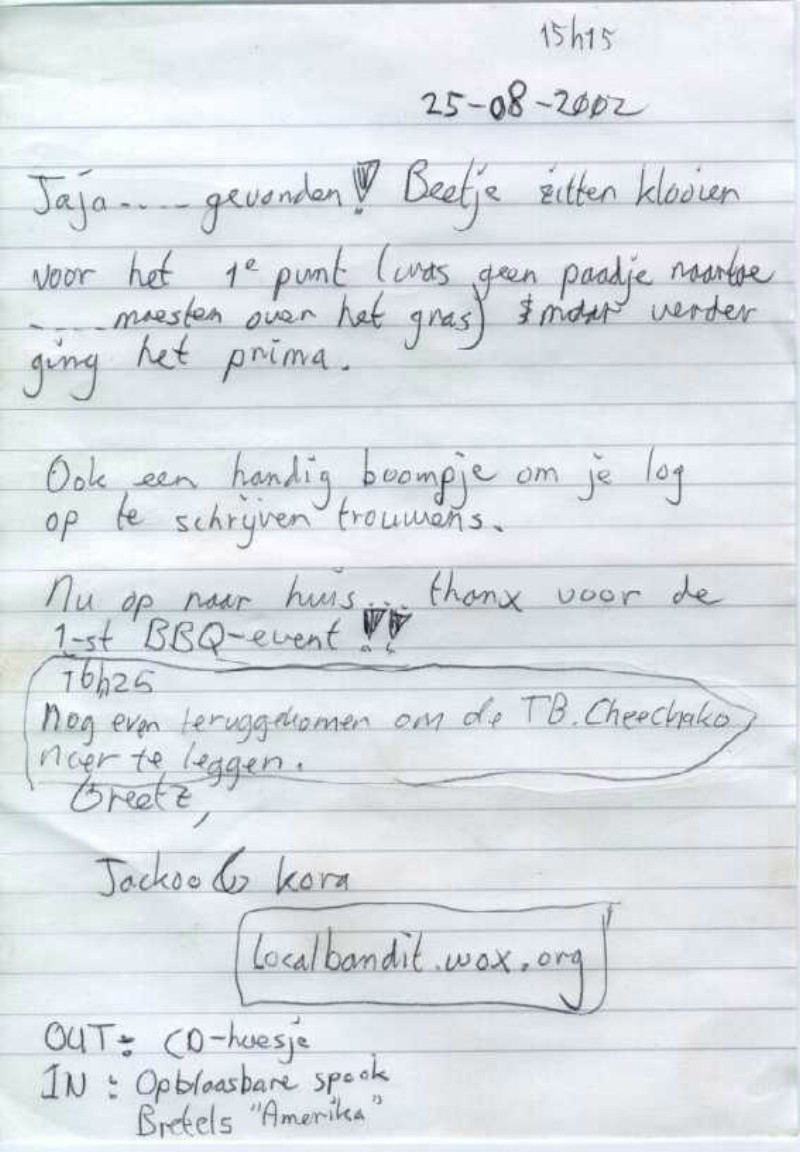 15h15
25-08-2002
Jaja.... gevonden! Beetje zitten klooien
voor het 1e punt (was geen paadje naartoe
.... moesten over het gras) maar verder
ging het prima.
Ook een handig boompje om je log
op te schrijven trouwens.
Nu op naar huis... thanx voor de
1-st BBQ-event!!
16h25
Nog even teruggekomen om de TB. Cheechako
neer te leggen.
Greetz,
Jackoo & Kora
localbandit.wox.org
OUT: CD-hoesje
IN: Opblaasbare spook
Bretels "Amerika"